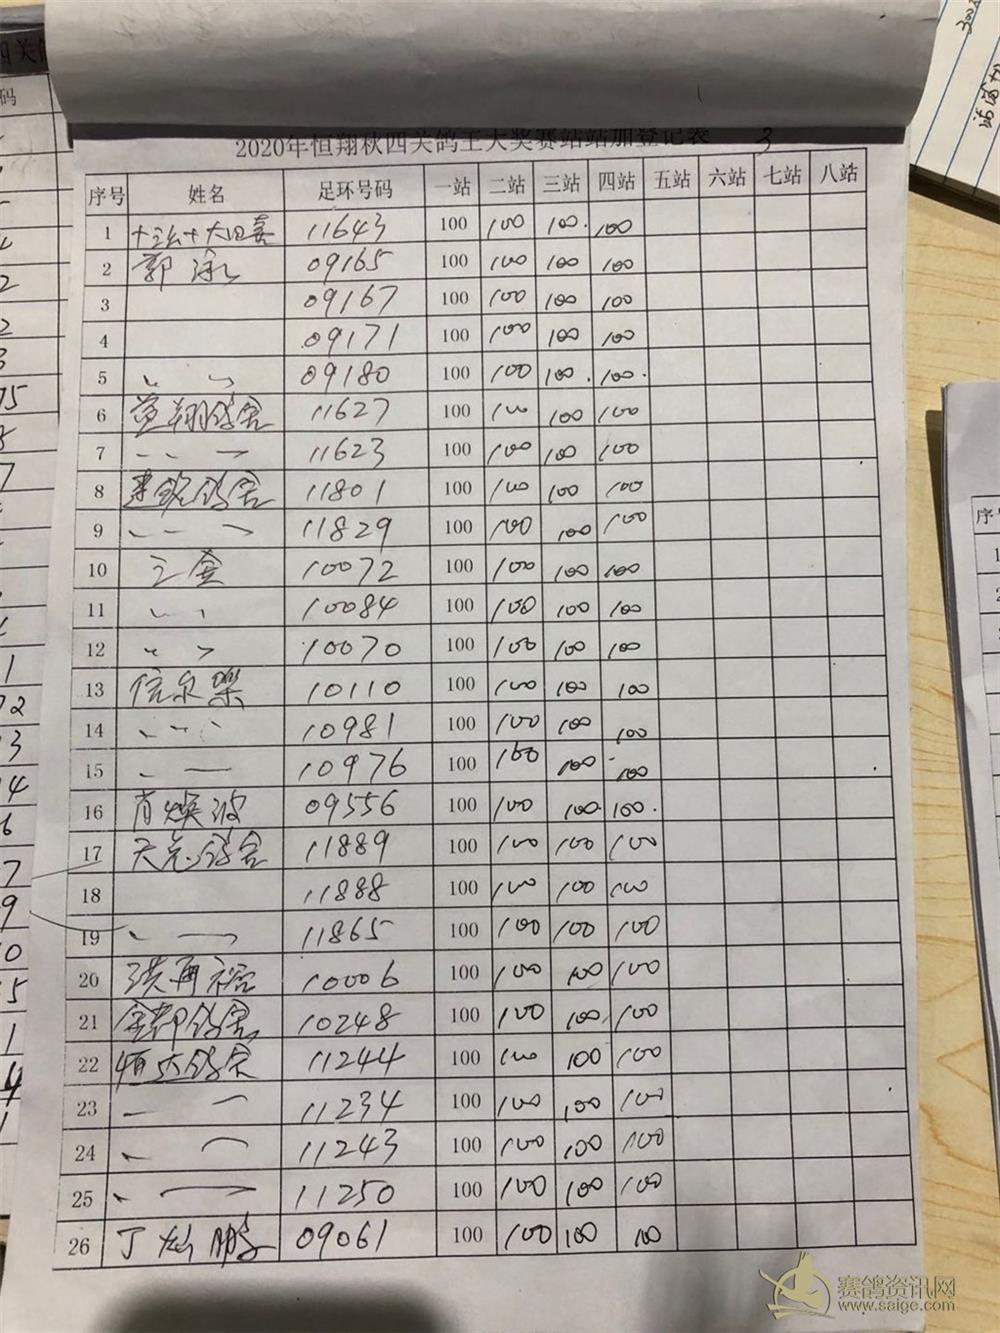 2020年恒翔秋四关鸽王大奖赛站站加登记表 3
序号 姓名 足环号码 一站 二站 三站 四站 五站 六站 七站 八站
1 11643 100 100 100. 100
2 郭 09165 100 100 100 100
3 09167 100 100 100 100
4 09171 100 100 100 100
5 〃 〃 09180 100 100 100 100.
6 翔鸽舍 11627 100 100 100 100
7 〃 〃 〃 11623 100 100 100 100
8 建铭鸽舍 11801 100 100 100 100
9 〃 〃 〃 11829 100 100 100 100
10 三金 10072 100 100 100 100
11 〃 〃 10084 100 100 100 100
12 〃 〃 10070 100 100 100 100
13 10110 100 100 100 100
14 〃 〃 〃 10981 100 100 100 100
15 〃 〃 10976 100 100 100 100
16 肖焕波 09556 100 100 100 100.
17 天 鸽舍 11889 100 100 100 100
18 11888 100 100 100 100
19 〃 〃 11865 100 100 100 100
20 洪再 10006 100 100 100 100
21 金都鸽舍 10248 100 100 100 100
22 恒达鸽舍 11244 100 100 100 100
23 〃 〃 11234 100 100 100 100
24 〃 〃 11243 100 100 100 100
25 〃 〃 11250 100 100 100 100
26 丁 鹏 09061 100 100 100 100
赛鸽资讯网
www.saige.com